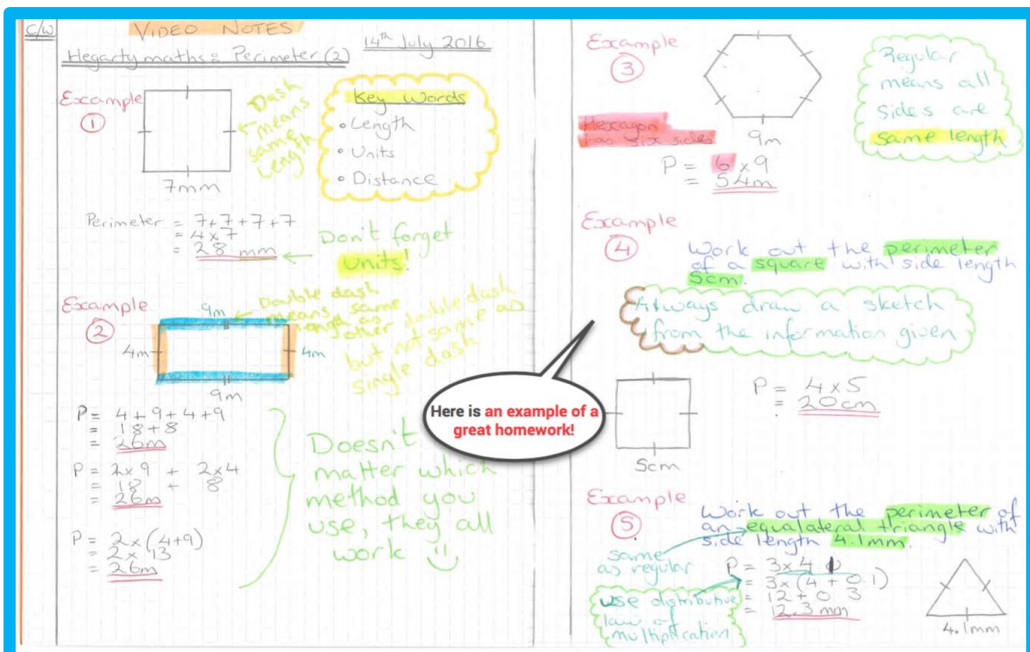 C/W
VIDEO NOTES
14th July 2016
Hegartymaths: Perimeter (2)
Example
1
7mm
Dash
means
same
length
Key Words
• Length
• Units
• Distance
Perimeter = 7+7+7+7
= 4x7
= 28 mm
Don't forget
Units!
Example
2
9m
4m
4m
9m
Double dash
means same
length as
other double dash
but not same as
single dash
P = 4+9+4+9
= 18+8
= 26m
P = 2x9 + 2x4
= 18 + 8
= 26m
P = 2x(4+9)
= 2x13
= 26m
Doesn't
matter which
method you
use, they all
work
Example
3
9m
Hexagon
has six sides
P = 6x9
= 54m
Regular
means all
sides are
same length
Example
4
Work out the perimeter
of a square with side length
5cm.
Always draw a sketch
from the information given
5cm
P = 4x5
= 20cm
Here is an example of a
great homework!
Example
5
Work out the perimeter of
an equalateral triangle with
side length 4.1mm.
same
as regular
P = 3x4.1
= 3x(4+0.1)
= 12+0.3
= 12.3mm
use distributive
law of
multiplication
4.1mm